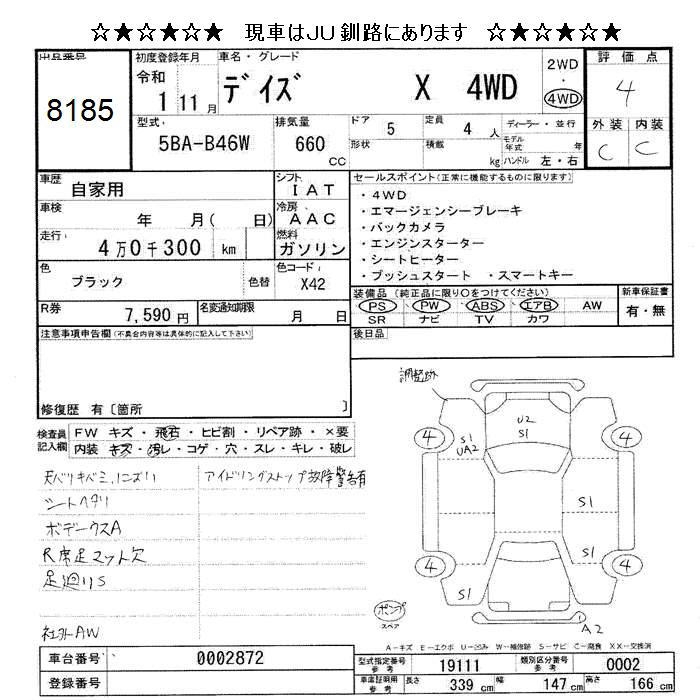 ☆★☆★☆★ 現車はJU釧路にあります ☆★☆★☆★
出品番号
8185
初度登録年月
令和
1 11 月
車名・グレード
デイズ X 4WD
2WD
・
4WD
評価点
4
外装 内装
C C
型式
5BA-B46W
排気量
660
CC
ドア 5
形状
定員 4 人
積載 kg
ディーラー・並行
モデル年式 年
ハンドル 左・右
車歴
自家用
シフト
IAT
車検
年 月( 日)
冷房
AAC
走行
4万0千300 km
燃料
ガソリン
色
ブラック
色替
色コード
X42
R券
7,590円
名変通知期限
月 日
セールスポイント(正常に機能するものに限ります)
・4WD
・エマージェンシーブレーキ
・バックカメラ
・エンジンスターター
・シートヒーター
・プッシュスタート ・スマートキー
装備品 (純正品に限り○をつけてください)
PS PW ABS エアB AW
SR ナビ TV カワ
新車保証書
有・無
後日品
注意事項申告欄(不具合内容等は具体的に記入して下さい)
修復歴 有〔箇所 〕
検査員記入欄
FW キズ・飛石・ヒビ割・リペア跡・×要
内装 キズ・汚レ・コゲ・穴・スレ・キレ・破レ
天ベリキバミ、ハニズリ
シートヘタリ
ボデークスA
R席足マット欠
足廻りS
社外AW
アイドリングストップ故障警告有
調整跡
U2
S1
S1
UA2
4
4
S1
S1
4
4
S1
S1
A2
ポンプ
スペア
A-キズ E-エクボ U-凹み W-補修跡 S-サビ C-腐食 XX-交換済
車台番号
0002872
登録番号
型式指定番号
参考
19111
類別区分番号
参考
0002
車庫証明用
参考
長さ 339 cm
幅 147 cm
高さ 166 cm